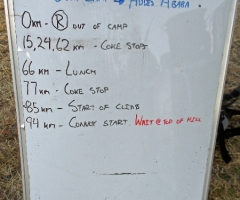 → Addis Ababa
0km - Ⓡ out of camp
15,24,62 km - Coke stops
66 km - Lunch
77 km - Coke stop
85 km - Start of climb
94 km - Convoy start. Wait @ top of hill